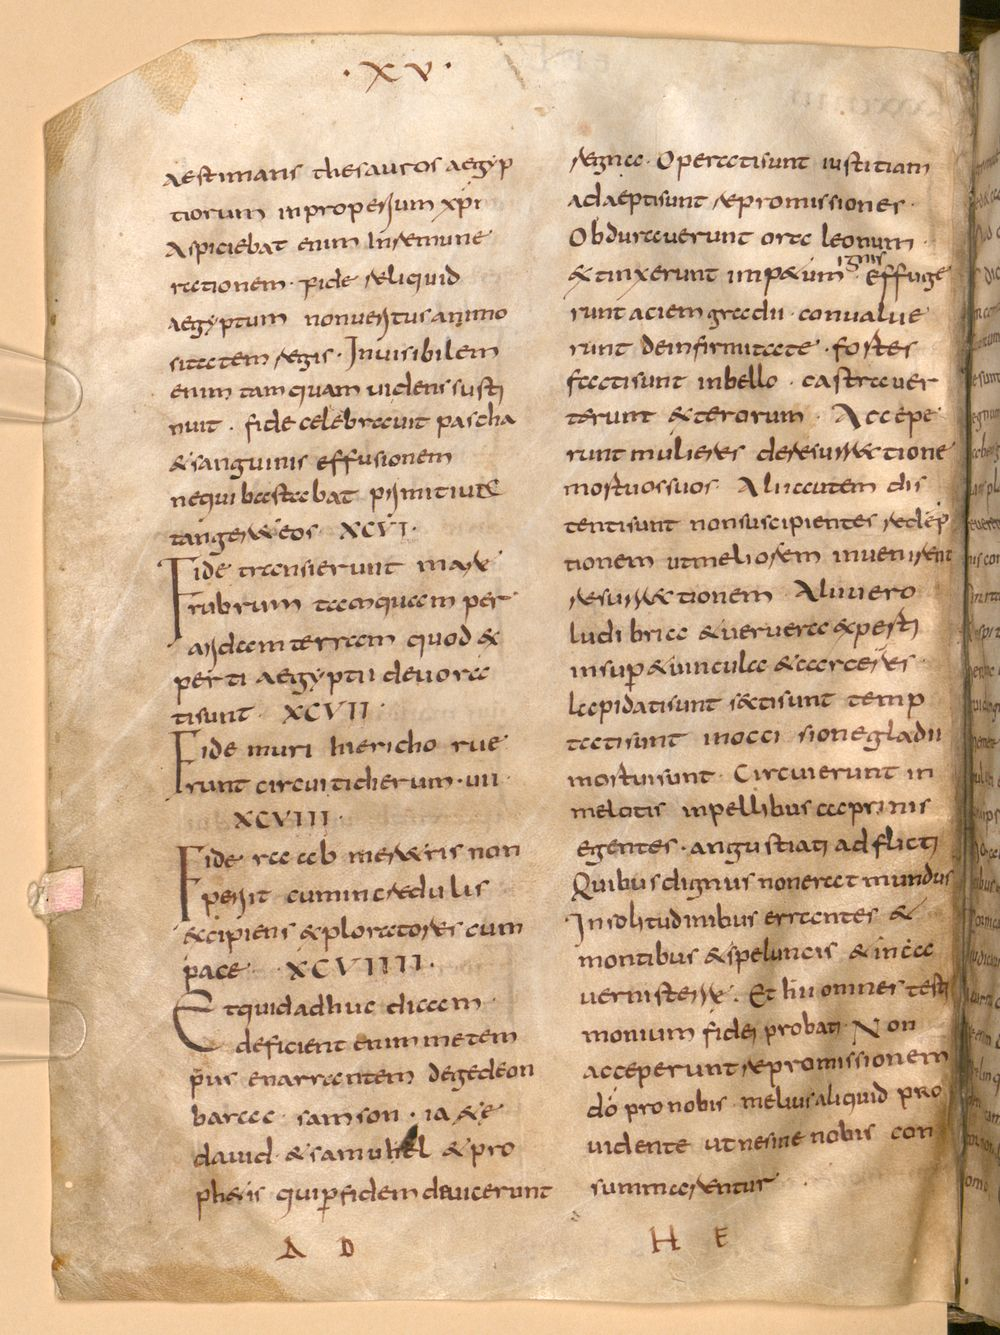 · XV ·
aestimans thesauros aegyp
tiorum inproperium xpi
Aspiciebat enim Inremune
rationem · Fide reliquid
aegyptum nonueritus animo
sitatem regis · Inuisibilem
enim tamquam uidens susti
nuit · fide celebrauit pascha
& sanguinis effusionem
nequi bastabat primitiua
tangereteos XCVI ·
Fide transierunt mare
rubrum tamquam per
aridam terram quod ex
perti aegyptii deuora
tisunt XCVII ·
Fide muri hiericho rue
runt circuiticherum · uii ·
XCVIII ·
Fide raab meretris non
perit cumincredulis
excipiens exploratores cum
pace XCVIIII ·
Etquidadhuc dicam
deficient enim metem
pus enarrantem degedeon
barac · samson · ia&e
dauid · & samuhel & pro
ph&is quiperfidem deuicerunt
regna · Operatisunt iustitiam
adaeptisunt repromissiones ·
Obdurauerunt ora leonum
& tinxerunt imp&um ignis effuge
runt aciem gradii · conualue
runt deinfirmitate · fortes
factisunt inbello · castrauer
terunt & terorum · Accepe
runt mulieres deresurrectione
mortuossuos · Aliiautem dis
tentisunt nonsuscipientes redep
tionem utmeliorem inuenirent
resurrectionem Aliiuero
ludibria & ueruera & perti
insup & uincula & carceres ·
Lapidatisunt sectisunt temp
tatisunt inocci sionegladii
mortuisunt · Circuierunt in
melotis inpellibus caprinis
egentes · angustiati adflicti
Quibusdignus nonerat mundus
Insolitudinibus errantes &
montibus & speluncis & inca
uernisterre · Et hii omnes testi
monium fidei probati · Non
acceperunt repromissionem
dō pronobis melius aliquid pro
uidente utnesine nobis con
summarentur
A D H E